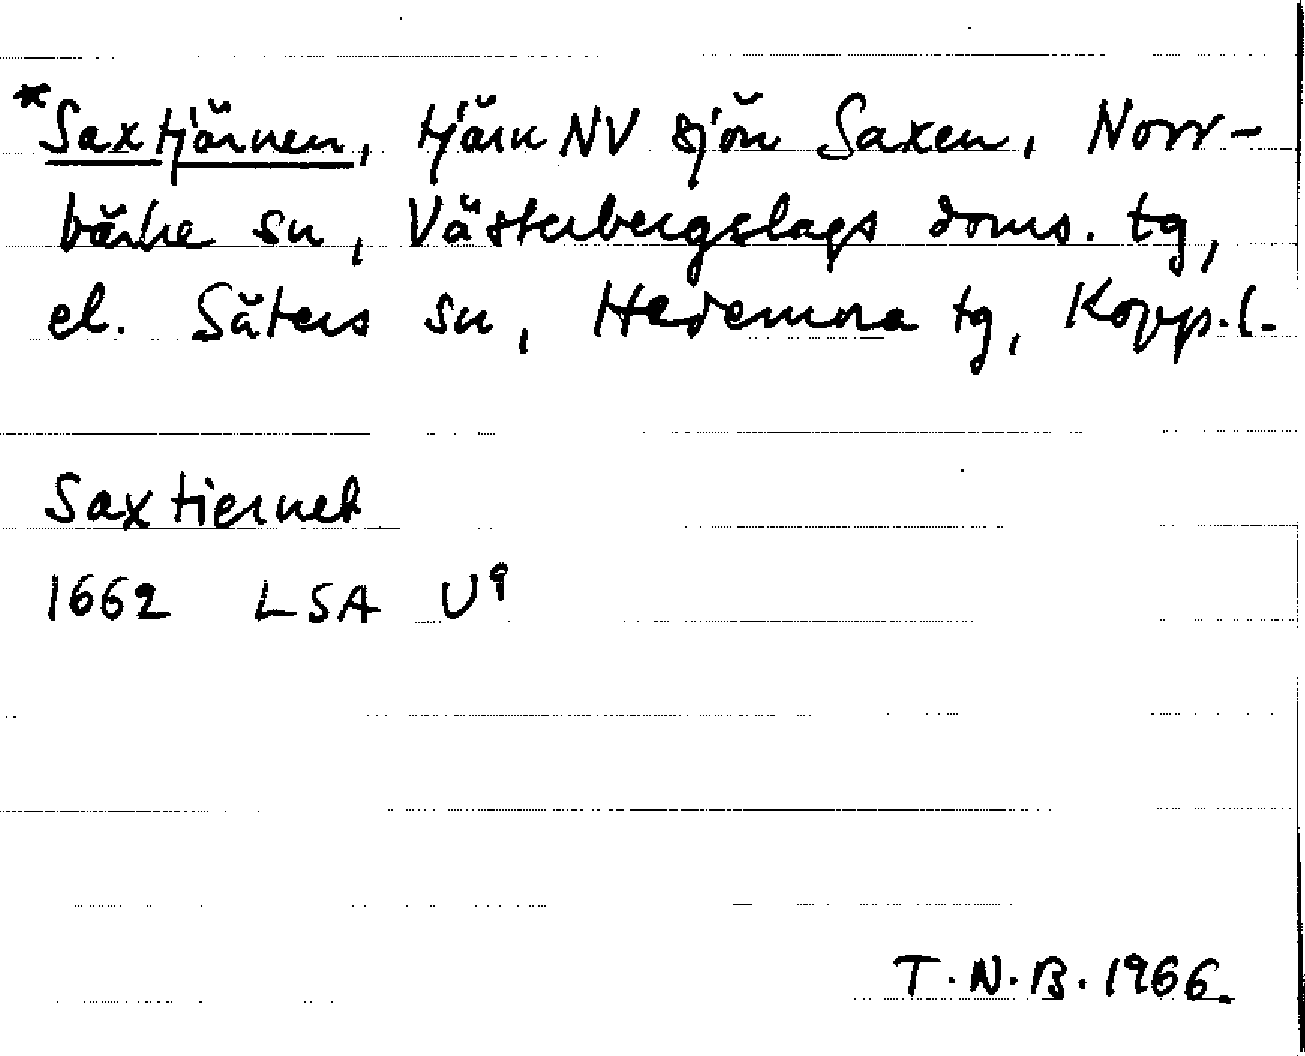 *Saxtjärnen, tjärn NV sjön Saxen, Norr-
bärke sn, Västerbergslags doms. tg,
el. Säters sn, Hedemora tg, Kopp.l.
Saxtiernet
1662 LSA U9
T.N.B. 1966.